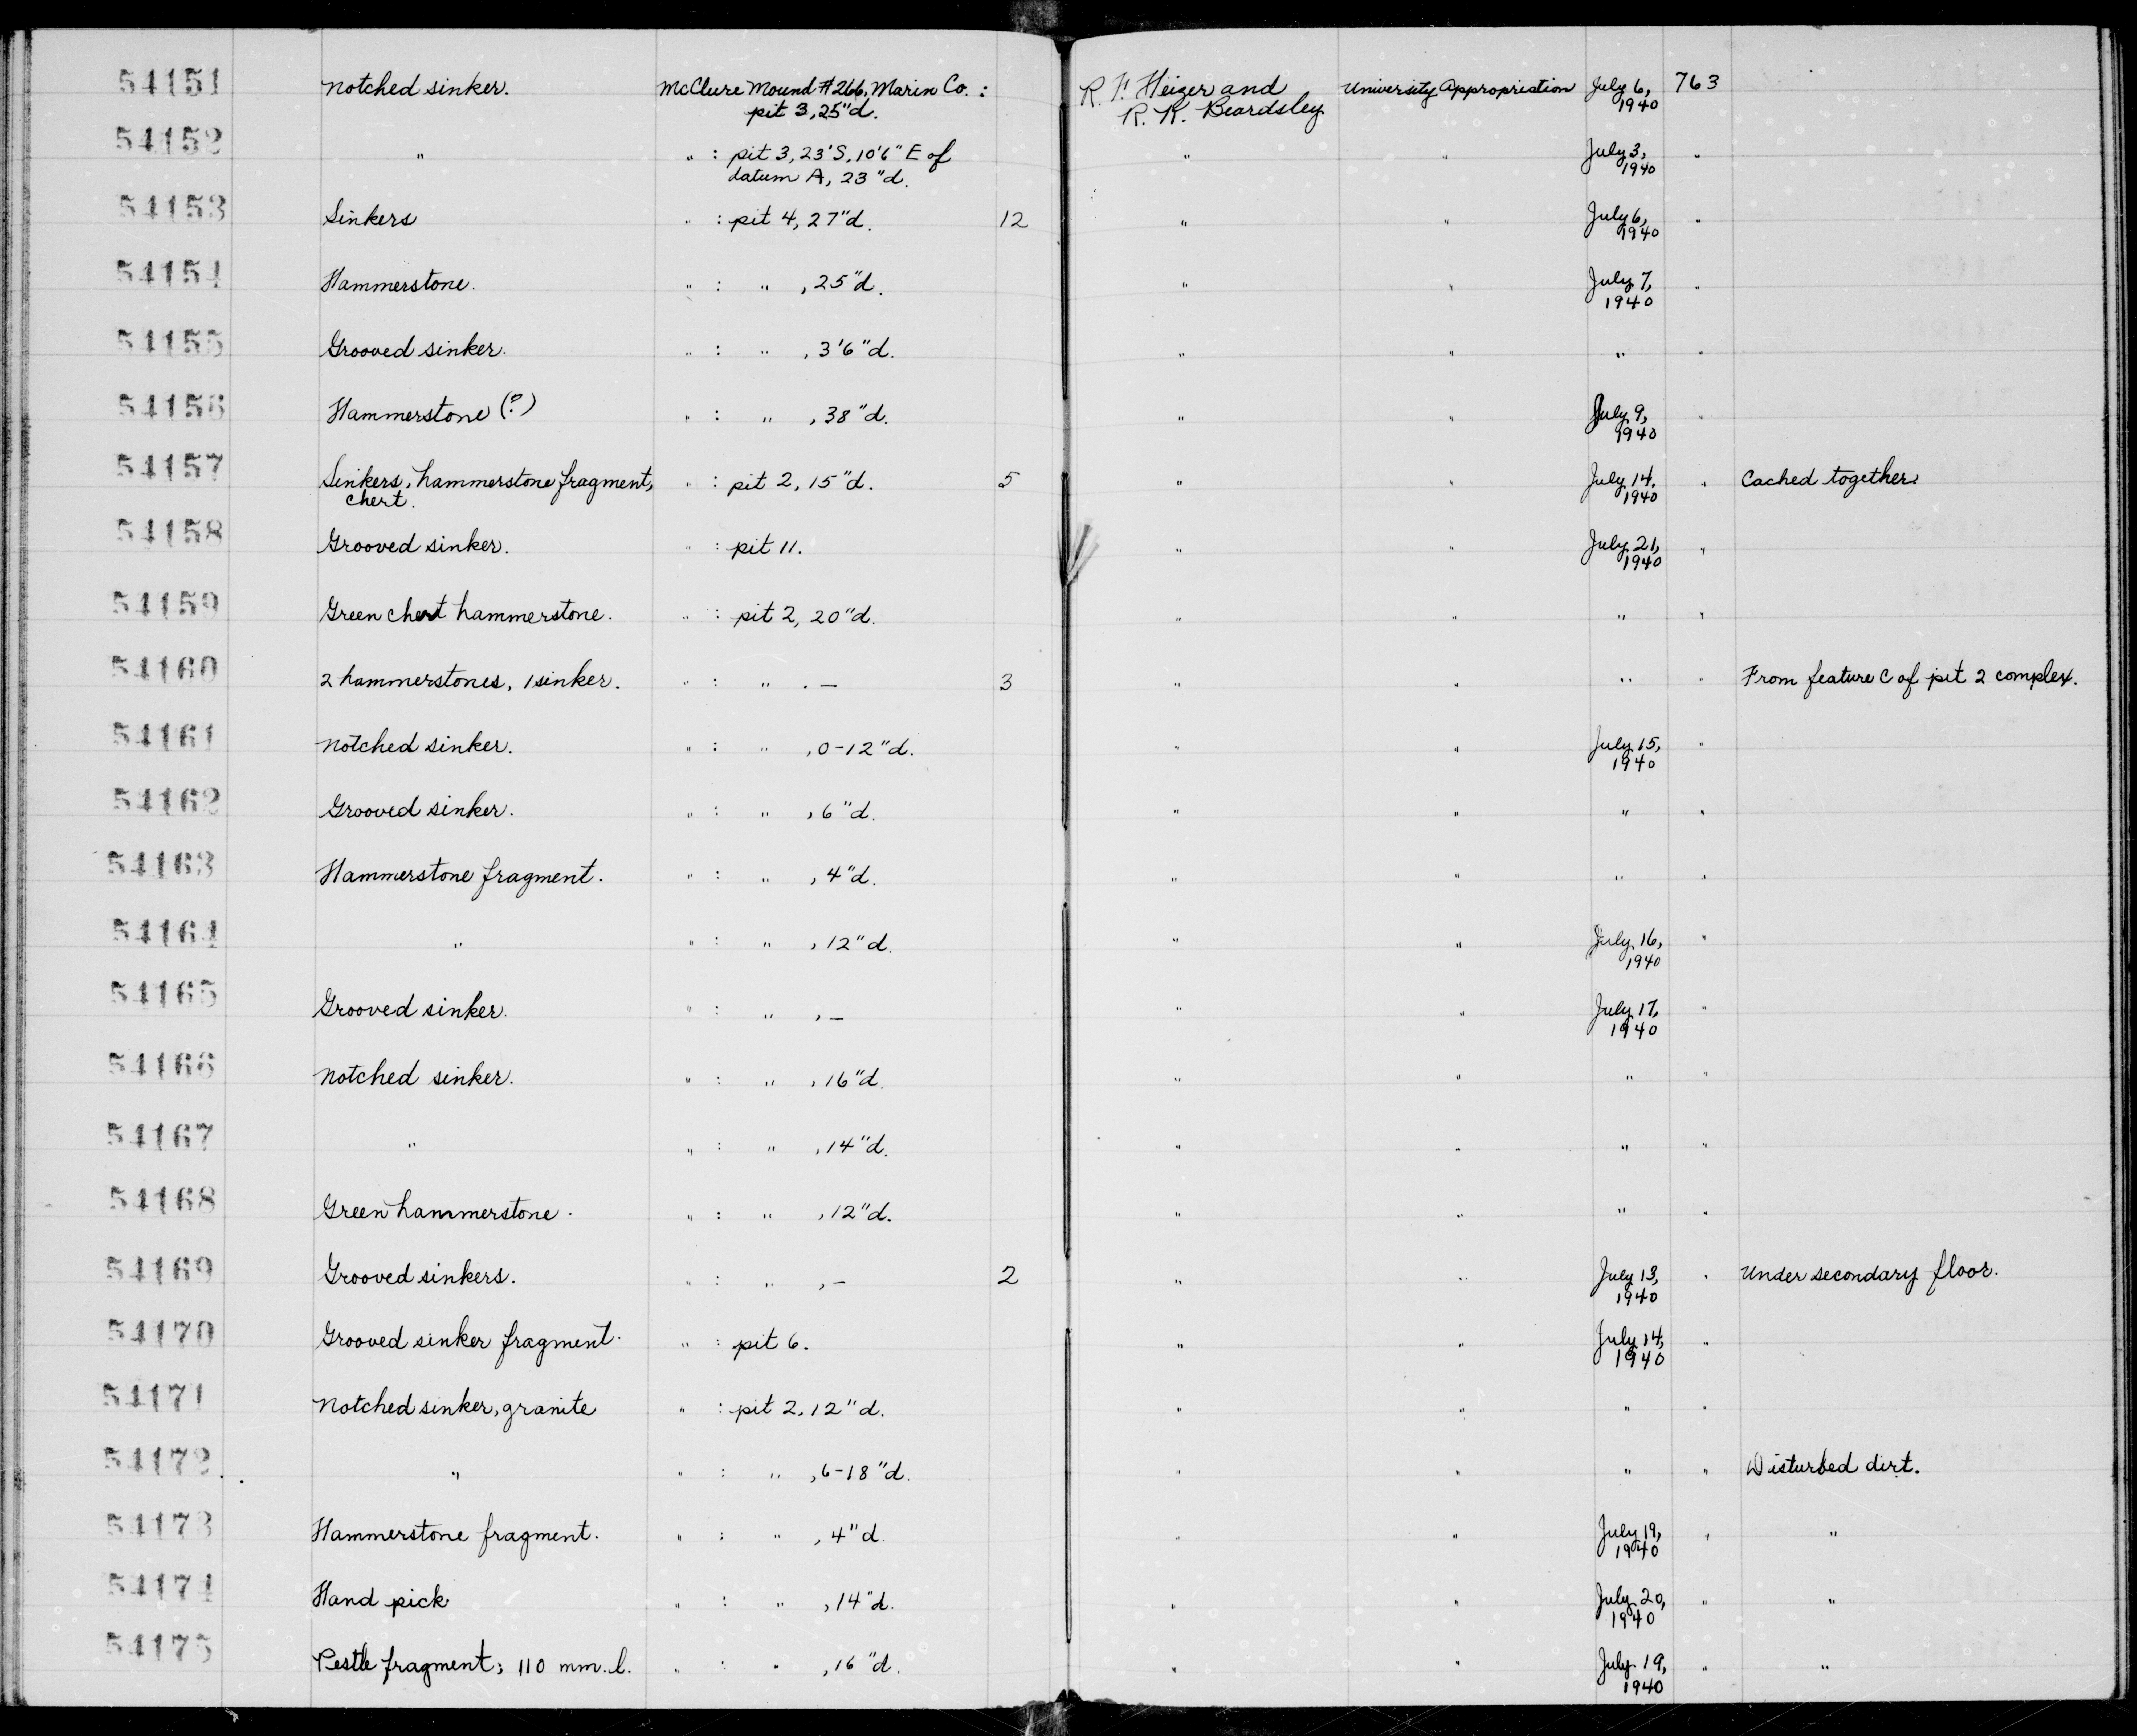 54151 Notched sinker. McClure Mound #266, Marin Co.: R. F. Heizer and University Appropriation July 6, 763
pit 3, 25"d. R. K. Beardsley 1940
54152 " " : pit 3, 23'S, 10'6" E of " " July 3, "
datum A, 23"d. 1940
54153 Sinkers " : pit 4, 27"d. 12 " " July 6, "
1940
54154 Hammerstone. " : " , 25"d. " " July 7, "
1940
54155 Grooved sinker. " : " , 3'6"d. " " " "
54156 Hammerstone (?) " : " , 38"d. " " July 9, "
1940
54157 Sinkers, hammerstone fragment, " : pit 2, 15"d. 5 " " July 14, " Cached together.
chert. 1940
54158 Grooved sinker. " : pit 11. " " July 21, "
1940
54159 Green chert hammerstone. " : pit 2, 20"d. " " " "
54160 2 hammerstones, 1 sinker. " : " . — 3 " " " " From feature C of pit 2 complex.
54161 Notched sinker. " : " , 0-12"d. " " July 15, "
1940
54162 Grooved sinker. " : " , 6"d. " " " "
54163 Hammerstone fragment. " : " , 4"d. " " " "
54164 " " : " , 12"d. " " July 16, "
1940
54165 Grooved sinker. " : " , — " " July 17, "
1940
54166 Notched sinker. " : " , 16"d. " " " "
54167 " " : " , 14"d. " " " "
54168 Green hammerstone. " : " , 12"d. " " " "
54169 Grooved sinkers. " : " , — 2 " " July 13, " Under secondary floor.
1940
54170 Grooved sinker fragment. " : pit 6. " " July 14, "
1940
54171 Notched sinker, granite " : pit 2, 12"d. " " " "
54172 " " : " , 6-18"d. " " " " Disturbed dirt.
54173 Hammerstone fragment. " : " , 4"d. " " July 19, " "
1940
54174 Hand pick " : " , 14"d. " " July 20, " "
1940
54175 Pestle fragment; 110 mm. l. " : " , 16"d. " " July 19, " "
1940